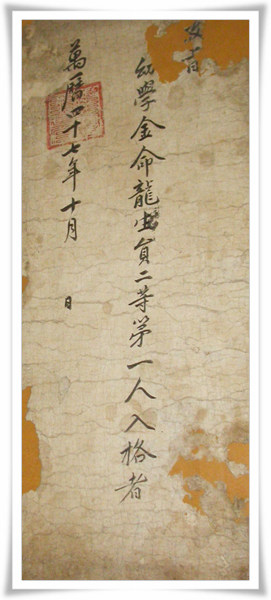 敎旨
幼學金命龍生員二等第一人入格者
萬曆四十七年十月 日